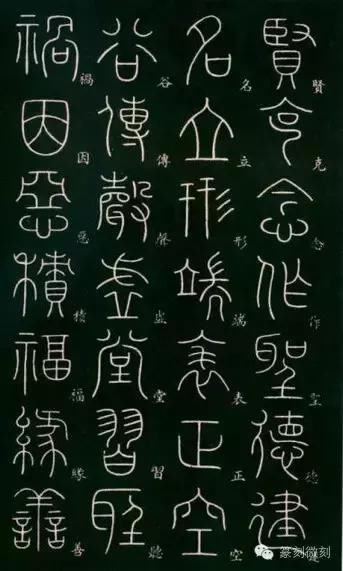 賢克念作聖德建
賢克念作聖德建
名立形端表正空
名立形端表正空
谷傳聲虛堂習聽
谷傳聲虛堂習聽
禍因惡積福緣善
禍因惡積福緣善
篆刻微刻